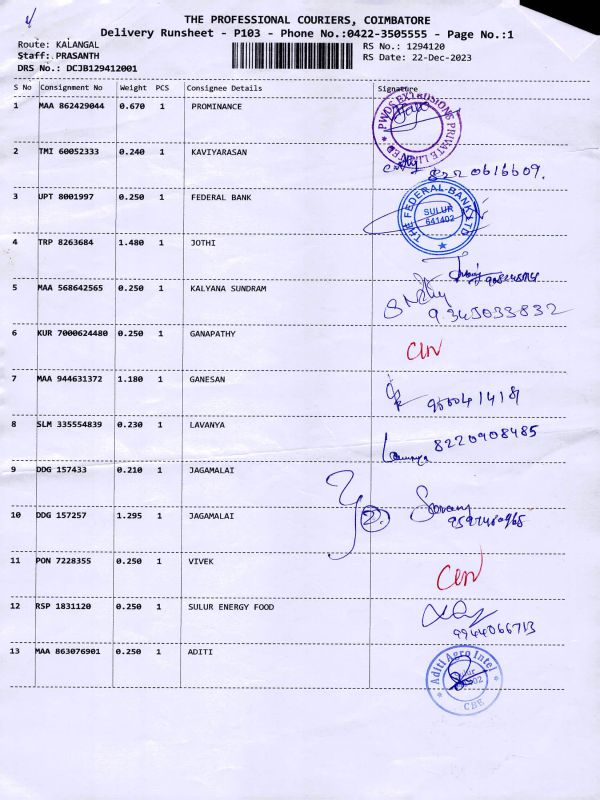 THE PROFESSIONAL COURIERS, COIMBATORE
Delivery Runsheet - P103 - Phone No.:0422-3505555 - Page No.:1
Route: KALANGAL
Staff: PRASANTH
DRS No.: DCJB129412001
RS No.: 1294120
RS Date: 22-Dec-2023
S No Consignment No Weight PCS Consignee Details Signature
1 MAA 862429044 0.670 1 PROMINANCE
PWDS EXTRUSIONS PRIVATE LIMITED
2 TMI 60052333 0.240 1 KAVIYARASAN
8220616609.
3 UPT 8001997 0.250 1 FEDERAL BANK
THE FEDERAL BANK LTD
SULUR
641402
4 TRP 8263684 1.480 1 JOTHI
5 MAA 568642565 0.250 1 KALYANA SUNDRAM
9345033832
6 KUR 7000624480 0.250 1 GANAPATHY
7 MAA 944631372 1.180 1 GANESAN
8 SLM 335554839 0.230 1 LAVANYA
Lavanya 8220908485
9 DDG 157433 0.210 1 JAGAMALAI
10 DDG 157257 1.295 1 JAGAMALAI
2.
11 PON 7228355 0.250 1 VIVEK
12 RSP 1831120 0.250 1 SULUR ENERGY FOOD
9944066713
13 MAA 863076901 0.250 1 ADITI
Aditi Agro Intel
CBE